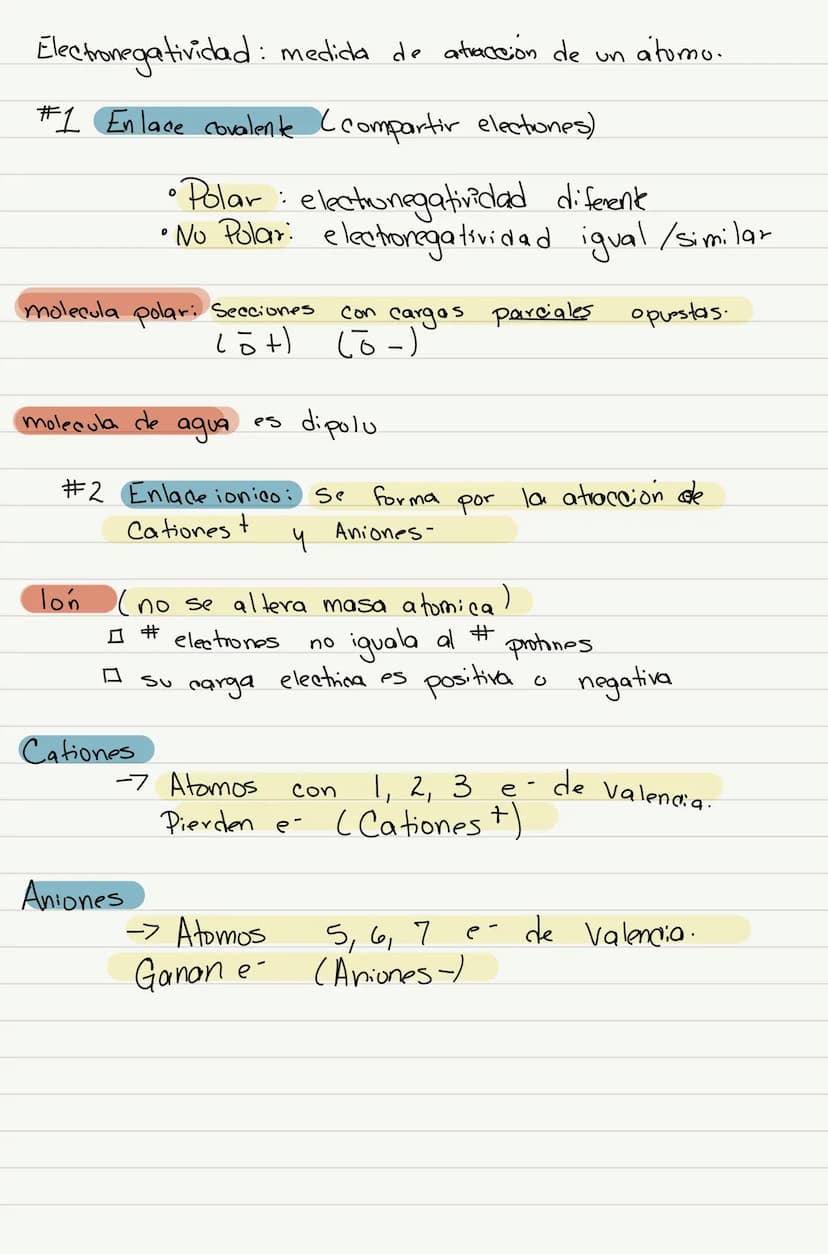 Electronegatividad: medida de atracción de un átomo.
#1 Enlace covalente (compartir electrones)
• Polar: electronegatividad diferente
• No Polar: electronegatividad igual/similar
molecula polar: Secciones con cargas parciales opuestas.
(δ+) (δ-)
molecula de agua es dipolo
#2 Enlace ionico: se forma por la atracción de
Cationes+ y Aniones-
Ión (no se altera masa atomica)
□ # electrones no iguala al # protnes
□ su carga electrica es positiva o negativa
Cationes
→ Atomos con 1, 2, 3 e- de valencia.
Pierden e- (Cationes+)
Aniones
→ Atomos 5, 6, 7 e- de valencia.
Ganan e- (Aniones-)